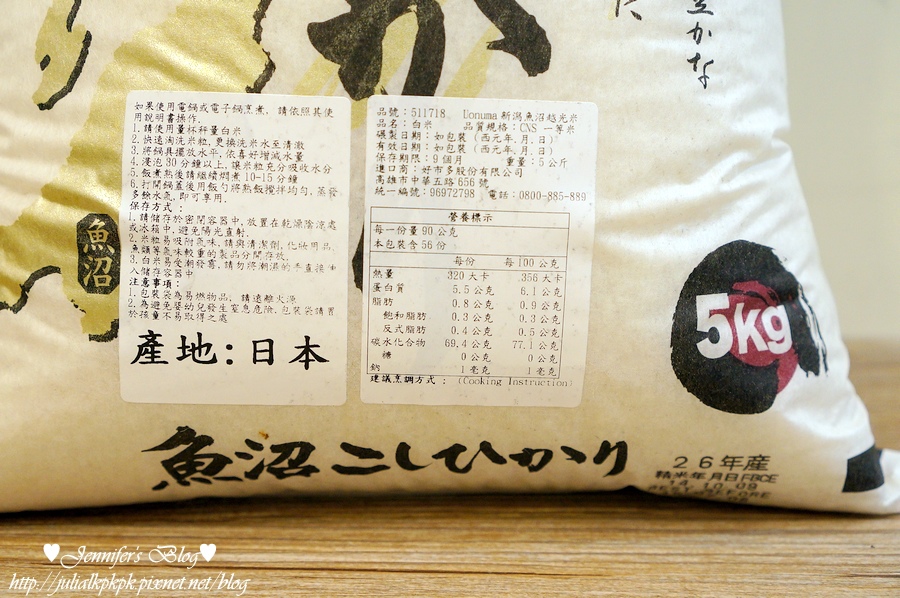 立かな
如果使用電鍋或電子鍋烹煮, 請依照其使
用說明書操作.
1.請使用量杯秤量白米
2.快速淘洗米粒,更換洗米水至清澈
3.將鍋具擺放水平,依喜好增減水量
4.浸泡30分鐘以上,讓米粒充分吸收水分
5.飯煮熟後請繼續燜煮10-15分鐘
6.打開鍋蓋後用飯勺將熟飯攪拌均勻,蒸發
多餘水氣,即可享用.
保存方式:
1.請儲存於密閉容器中,放置在乾燥陰涼處
或冰箱中,避免陽光直射.
2.米粒易吸附氣味,請與清潔劑,化妝用品,
魚類等氣味較重的製品分開存放.
3.白米易受潮發霉,請勿將潮濕的手直接伸
入儲存容器中
注意事項:
1.包裝袋為易燃物品, 請遠離火源
2.為避免嬰幼兒發生窒息危險,包裝袋請置
於孩童不易取得之處
產地:日本
品號:511718, Uonuma 新潟魚沼越光米
品名:白米 品質規格:CNS 一等米
碾製日期:如包裝 (西元年.月.日)
有效日期:如包裝 (西元年.月.日)
保存期限:9個月 重量:5公斤
進口商:好市多股份有限公司
高雄市中華五路656號
統一編號:96972798 電話:0800-885-889
營養標示
每一份量 90 公克
本包裝含 56 份
每份 每100公克
熱量 320 大卡 356 大卡
蛋白質 5.5 公克 6.1 公克
脂肪 0.8 公克 0.9 公克
飽和脂肪 0.3 公克 0.3 公克
反式脂肪 0.4 公克 0.5 公克
碳水化合物 69.4 公克 77.1 公克
糖 0 公克 0 公克
鈉 1 毫克 1 毫克
建議烹調方式: (Cooking Instruction)
魚沼
5kg
魚沼こしひかり
26年産
精米年月日
14.10.09
BEST BEFORE
♥Jennifer's Blog♥
http://julialkpkpk.pixnet.net/blog